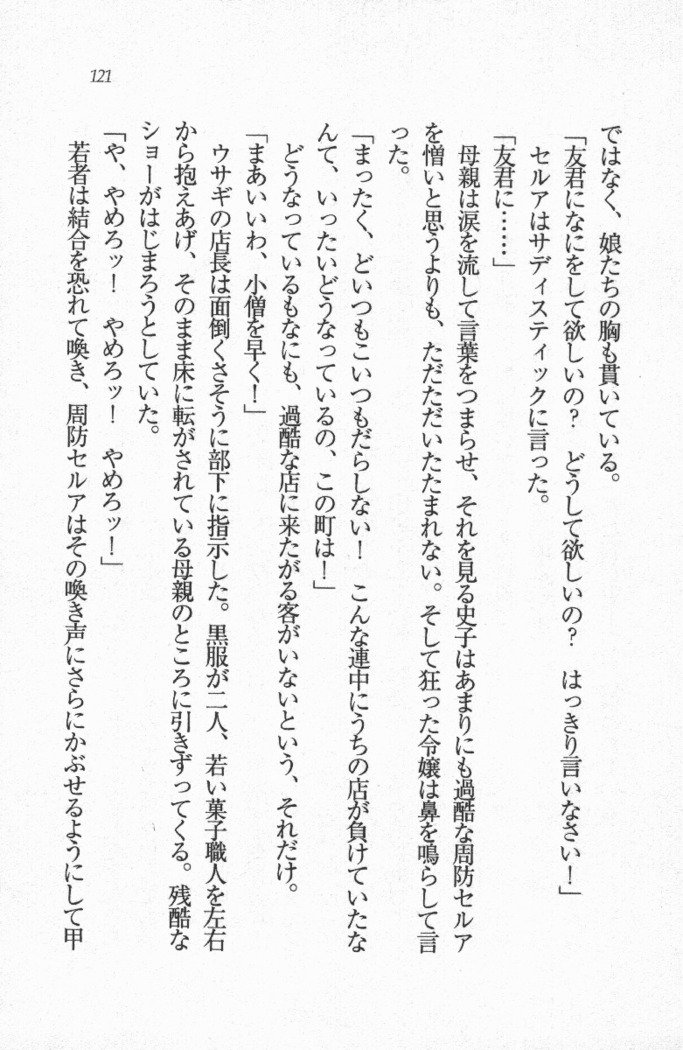 ではなく、娘たちの胸も貫いている。
「友君になにをして欲しいの？　どうして欲しいの？　はっきり言いなさい！」
セルアはサディスティックに言った。
「友君に……」
母親は涙を流して言葉をつまらせ、それを見る史子はあまりにも過酷な周防セルア
を憎いと思うよりも、ただただいたたまれない。そして狂った令嬢は鼻を鳴らして言
った。
「まったく、どいつもこいつもだらしない！　こんな連中にうちの店が負けていたな
んて、いったいどうなっているの、この町は！」
どうなっているもなにも、過酷な店に来たがる客がいないという、それだけ。
「まあいいわ、小僧を早く！」
ウサギの店長は面倒くさそうに部下に指示した。黒服が二人、若い菓子職人を左右
から抱えあげ、そのまま床に転がされている母親のところに引きずってくる。残酷な
ショーがはじまろうとしていた。
「や、やめろッ！　やめろッ！　やめろッ！」
若者は結合を恐れて喚き、周防セルアはその喚き声にさらにかぶせるようにして甲
121